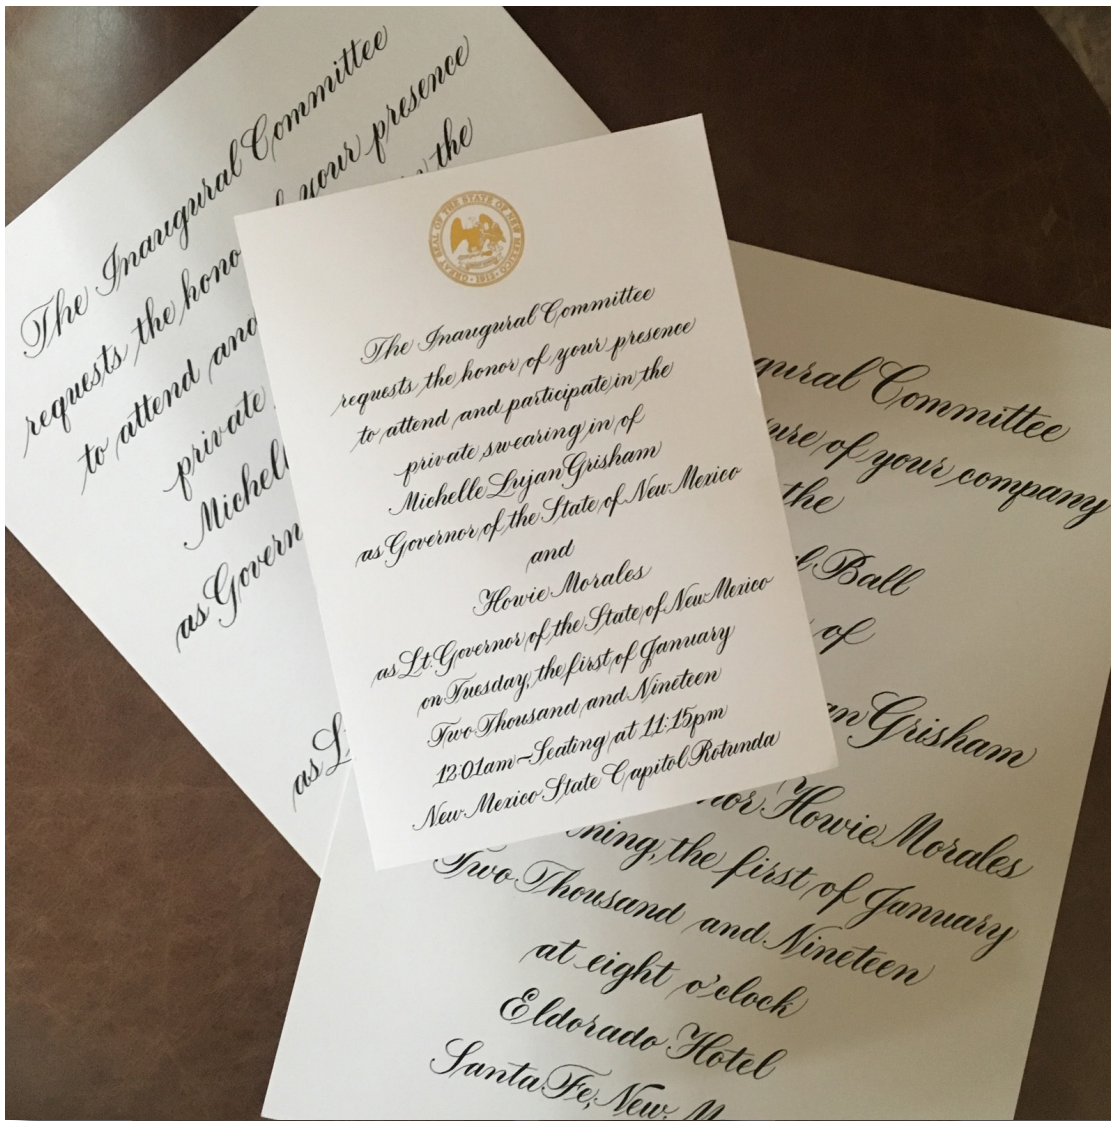 The Inaugural Committee
requests the hono
of your presence
to attend and
in the
private
Michell
as Govern
as L
GREAT SEAL OF THE STATE OF NEW MEXICO
· 1912 ·
The Inaugural Committee
requests the honor of your presence
to attend and participate in the
private swearing in of
Michelle Lujan Grisham
as Governor of the State of New Mexico
and
Howie Morales
as Lt. Governor of the State of New Mexico
on Tuesday, the first of January
Two Thousand and Nineteen
12:01am – Seating at 11:15pm
New Mexico State Capitol Rotunda
gural Committee
ure of your company
the
l Ball
of
an Grisham
nor Howie Morales
ning, the first of January
Two Thousand and Nineteen
at eight o'clock
Eldorado Hotel
Santa Fe, New M